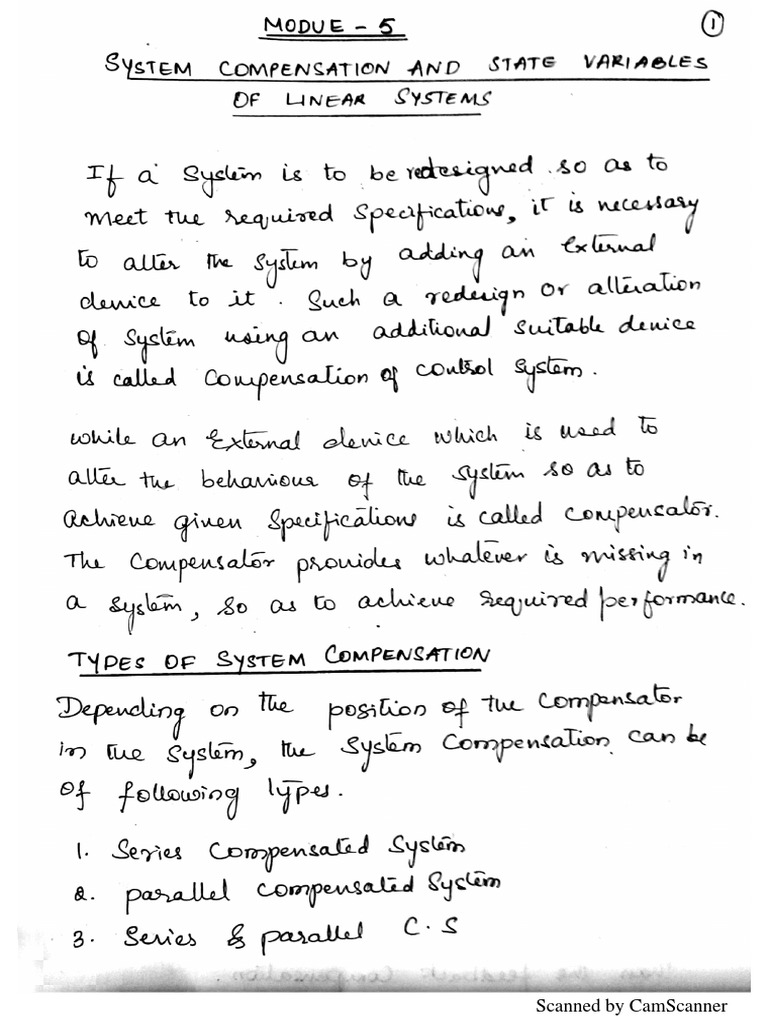 MODUE - 5
1
SYSTEM COMPENSATION AND STATE VARIABLES
OF LINEAR SYSTEMS
If a system is to be redesigned so as to
meet the required specifications, it is necessary
to alter the system by adding an external
device to it. Such a redesign or alteration
of system using an additional suitable device
is called compensation of control system.
While an external device which is used to
alter the behaviour of the system so as to
achieve given specifications is called compensator.
The compensator provides whatever is missing in
a system, so as to achieve required performance.
TYPES OF SYSTEM COMPENSATION
Depending on the position of the compensator
in the system, the system compensation can be
of following types.
1. Series compensated system
2. parallel compensated system
3. Series & parallel C.S
Scanned by CamScanner